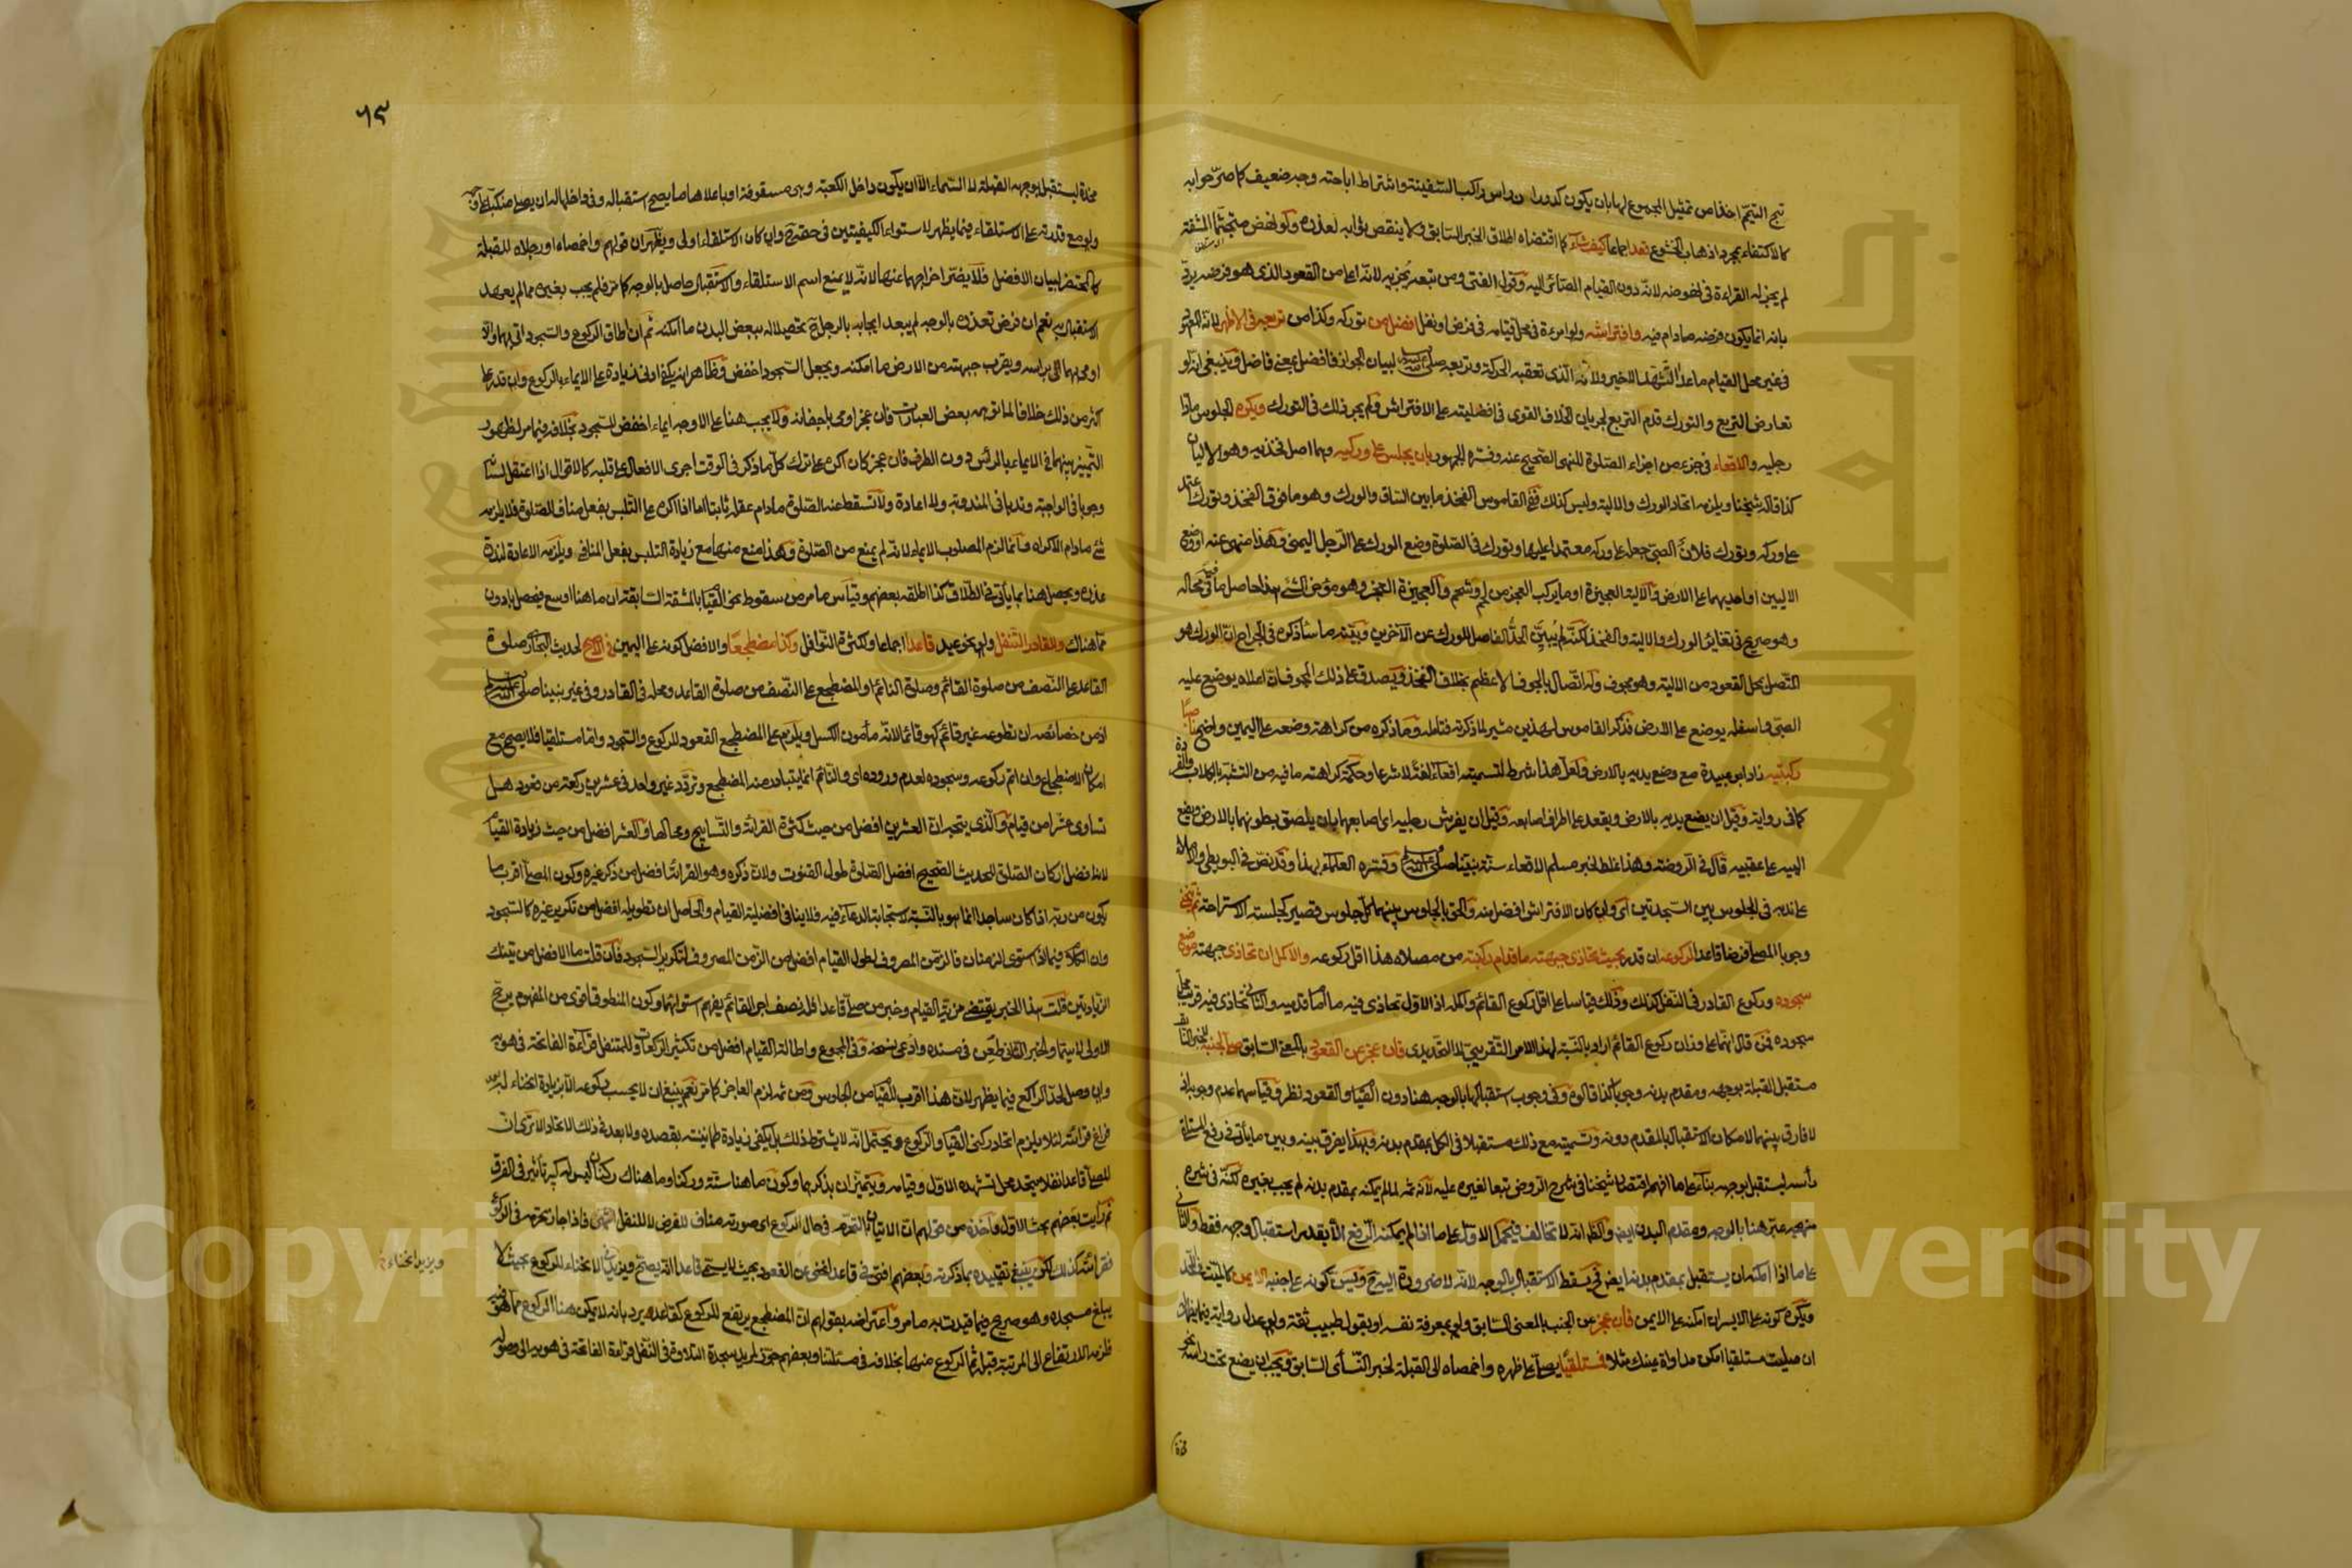 تبح التيمم اخذا من تمثيل المجموع لها بان يكون كدوران راس راكب السفينة واشتراط اباحته وجه ضعيف كما صرحوا به
كالاكتفاء بمجرد اذهاب الخشوع قعد اجماعا كيف شاء كما اقتضاه اطلاق الخبر السابق ولا ينقص ثوابه لعذره ولو نهض متجشما المشقة
لم يجز له القراءة في نهوضه لانه دون القيام الصائر اليه وقول الفتى ومن تبعه يجزيه لانه اعلى من القعود الذي هو فرضه يرد
بانه انما يكون فرضه مادام فيه وافتراشه ولو امرءة في محل قيامه في فرض او نفل افضل من توركه وكذا من تربعه في الاظهر لانه المعهود
في غير محل القيام ماعدا التشهد الاخير ولانه الذي تعقبه الحركة وتربعه صلى الله عليه وسلم لبيان الجواز فافضل بمعنى فاضل وينبغي انه لو
تعارض التربع والتورك قدم التربع لجريان الخلاف القوي في افضليته على الافتراش ولم يجر ذلك في التورك ويكره الجلوس مادا
رجليه والاقعاء في جزء من اجزاء الصلوة للنهي الصحيح عنه وفسره الجمهور بان يجلس على وركيه وهما اصل فخذيه وهو الاليان
كذا قاله شيخنا ويلزمه اتحاد الورك والالية وليس كذلك ففي القاموس الفخذ مابين الساق والورك وهو ما فوق الفخذ وتورك اعتمد
على وركه وتورك فلان الصبي جعله على وركه معتمدا عليها وتورك في الصلوة وضع الورك على الرجل اليمنى وهذا منهي عنه او وضع
الاليين او احديهما على الارض والالية العجيزة او ما يركب العجز من لحم وشحم والعجيزة العجز وهو مؤخر الشئ هذا حاصل ما فيه في محاله
وهو صريح في تغاير الورك والالية والفخذ لكنه لم يبين الحد الفاصل للورك عن الآخرين وبينه ما سأذكره في الجراح ان الورك هو
المتصل بمحل القعود من الالية وهو مجوف وله اتصال بالجوف الاعظم بخلاف الفخذ ويصدق على ذلك المجوف ان اعلاه يوضع عليه
الصبي واسفله يوضع على الارض فذكر القاموس لهذين مشير لما ذكرته فتامله وما ذكره من كراهته وضعه على اليمين ناصبا
ركبتيه زاد ابو عبيدة مع وضع يديه بالارض ولعل هذا شرط لتسميته اقعاء لغة لا شرعا وحكمة كراهته ما فيه من التشبه بالكلاب والقردة
كما في رواية وقيل ان يضع يديه بالارض ويقعد على اطراف اصابعه وقيل ان يفرش رجليه اي اصابعهما بان يلصق بطونهما بالارض ويضع
اليه على عقبيه قال في الروضة وهذا غلط لخبر مسلم الاقعاء سنة نبينا صلى الله عليه وسلم وفسره العلماء بهذا وقد نص في البويطي والاملاء
على ندبه في الجلوس بين السجدتين اي وان كان الافتراش افضل منه والحق بالجلوس بينهما كل جلوس قصير كجلسة الاستراحة ثم ينحني
وجوبا المصلي فرضا قاعدا لركوعه ان قدر بحيث تحاذي جبهته ما قدام ركبتيه من مصلاه هذا اقل ركوعه والاكمل ان تحاذي جبهته موضع
سجوده وركوع القادر في النفل كذلك وذلك قياسا على اقل ركوع القائم واكمله اذ الاول تحاذي فيه ما امام قدميه والثاني تحاذي فيه قريب محل
سجوده فمن قال انهما على وزان ركوع القائم اراد بالنسبة لهذا الامر التقريبي لا التحديدي فان عجز عن القعود بالمعنى السابق صلى لجنبه للخبر السابق
مستقبل القبلة بوجهه ومقدم بدنه وجوبا كذا قالوه وفي وجوب استقبالها بالوجه هنا دون القيام والقعود نظر وقياسهما عدم وجوبه اذ
لا فارق بينهما لامكان الاستقبال بالمقدم دونه وتسميته مع ذلك مستقبلا في الكل بمقدم بدنه وبهذا يفرق بينه وبين ما يأتي في رفع المستلقي
رأسه ليستقبل بوجهه بناء على ما افهم اقتصار شيخنا في شرح الروض تبعا لغيره عليه لانه ثم لما لم يكنه بمقدم بدنه لم يجب بغيره لكنه في شرح
منهجه عبر هنا بالوجه ومقدم البدن ايض والظ انه لا تخالف فيحمل الاول على ما اذا لم يمكنه الرفع الا بقدر استقبال وجهه فقط والثاني
على ما اذا امكنه ان يستقبل بمقدم بدنه ايض في يسقط الاستقبال بالوجه لانه لا ضرورة اليه ويسن كونه على جنبه الايمن كالميت في اللحد
ويكره كونه على الايسر ان امكنه على الايمن فان عجز عن الجنب بالمعنى السابق ولو بمعرفة نفسه او بقول طبيب ثقة ولو عدل رواية فيما يظهر
ان صليت مستلقيا امكن مداواة عينك مثلا فمستلقيا يصلي على ظهره واخمصاه الى القبلة لخبر النسائي السابق ويجب ان يضع تحت راسه نحو
مخدة
٦٣
مخدة ليستقبل بوجهه القبلة لا السماء الا ان يكون داخل الكعبة وهي مسقوفة او باعلاها ما يصح استقباله وفي داخلها له ان يصلي منكبا على وجهه
ولو مع قدرته على الاستلقاء فيما يظهر لاستواء الكيفيتين في حقه ح وان كان الاستلقاء اولى ويظهر ان قولهم واخمصاه او رجلاه للقبلة
كالمحتضر لبيان الافضل فلا يضر اخراجهما عنها لانه لا يمنع اسم الاستلقاء والاستقبال حاصل بالوجه كما مر فلم يجب بغيره مما لم يعهد
الاستقبال به نعم ان فرض تعذره بالوجه لم يبعد ايجابه بالرجل ح تحصيلا له ببعض البدن ما امكنه ثم ان اطاق الركوع والسجود اتى بهما والا
اومى بهما الى براسه ويقرب جبهته من الارض ما امكنه ويجعل السجود اخفض وظاهر انه يكفي ادنى زيادة على الايماء بالركوع وان قدر على
اكثر من ذلك خلافا لما توهمه بعض العبارات فان عجز اومى باجفانه ولا يجب هنا على الاوجه ايماء اخفض للسجود بخلافه فيما مر لظهور
التمييز بينهما في الايماء بالرأس دون الطرف فان عجز كان اكره على ترك كل ما ذكر في الوقت اجرى الافعال على قلبه كالاقوال اذا اعتقل لسانه
وجوبا في الواجبة وندبا في المندوبة ولا اعادة ولا تسقط عنه الصلوة مادام عقله ثابتا اما اذا اكره على التلبس بفعل مناف للصلوة فلا يلزمه
شئ مادام الاكراه وانما لزم المصلوب الايماء لانه لم يمنع من الصلوة وهذا منع منها مع زيادة التلبس بفعل المنافي ويلزمه الاعادة لندرة
عذره ويحصل هنا بما يأتي في الطلاق كذا اطلقه بعضهم وقياس ما مر من سقوط نحو القيام بالمشقة السابقة ان ما هنا اوسع فيحصل بادون
مما هناك وللقادر التنفل ولو نحو عيد قاعدا اجماعا ولكثرة النوافل وكذا مضطجعا والافضل كونه على اليمين في الاصح لحديث البخاري صلوة
القاعد على النصف من صلوة القائم وصلوة النائم اي المضطجع على النصف من صلوة القاعد ومحله في القادر وفي غير نبينا صلى الله عليه وسلم
اذ من خصائصه ان تطوعه غير قائم كهو قائما لانه مأمون الكسل ويلزم على المضطجع القعود للركوع والسجود واما مستلقيا فلا يصح مع
امكان الاضطجاع وان اتم ركوعه وسجوده لعدم وروده اي والنائم انما يتبادر منه المضطجع وتردد غير واحد في عشرين ركعة من قعود هل
تساوى عشرا من قيام والذي يتجه ان العشرين افضل من حيث كثرة القراءة والتسابيح ومحالها والعشر افضل من حيث زيادة القيام
لانها افضل اركان الصلوة للحديث الصحيح افضل الصلوة طول القنوت ولان ذكره وهو القراءة افضل من ذكر غيره وكون المصلي اقرب ما
يكون من ربه اذا كان ساجدا انما هو بالنسبة لاستجابة الدعاء فيه فلا ينافي افضلية القيام والحاصل ان تطويله افضل من تكرير غيره كالسجود
وان الكلام فيما اذا استوى الزمنان فالزمن المصروف لطول القيام افضل من الزمن المصروف لتكرير السجود فان قلت ما الافضل من تينك
الزيادتين قلت هذا الخبر يقتضي مزية القيام وخبر من صلى قاعدا فله نصف اجر القائم يفهم استوائهما وكون المنطوق اقوى من المفهوم يرجح
الاولى لاسيما والخبر الثاني طعن في سنده وادعي نسخه وفي المجموع واطالة القيام افضل من تكثير الركعات وللمتنفل قراءة الفاتحة في هويه
وان وصل لحد الراكع فيما يظهر لان هذا اقرب للقيام من الجلوس ومن ثمه لزم العاجز كما مر نعم ينبغي ان لا يحسب ركوعه الا بزيادة انحناء له بعد
فراغ قرائته لئلا يلزم اتحاد ركني القيام والركوع ويحتمل انه لا يشترط ذلك بل يكفي زيادة طمانينة بقصده ولا بعد في ذلك الاتحاد الا ترى ان
المصلي قاعدا نفلا سيتحد محل تشهده الاول وقيامه ويتميزان بذكرهما وكون ما هنا سنة وركنا وما هناك ركنان ليس له كبير تأثير في الفرق
ثم رأيت بعضهم بحث الاول واخذه من قولهم ان الاتيان بالتحرم في حال الركوع اي صورته مناف للفرض لا للنفل انتهى فاذا جاز تحرمه في الركوع
فقرائته كذلك لكن ينبغي تقييده بما ذكرته وبعضهم افتى في قاعد انحنى عن القعود بحيث لا يسمى قاعدا انه يصح ويزيد في الانحناء للركوع بحيث لا
يبلغ مسجده وهو صريح فيما قيدت به ما مر واعتراضه بقولهم ان المضطجع يرتفع للركوع كقاعد يرد بانه لا يمكن هنا الركوع مما هو فيه
فلزمه الارتفاع الى المرتبة قبله ثم الركوع منها بخلافه في مسئلتنا وبعضهم جوز لمريد سجدة التلاوة في النفل قراءة الفاتحة في هويه الى وصوله
ويزيد انحناءه
Copyright © King Saud University